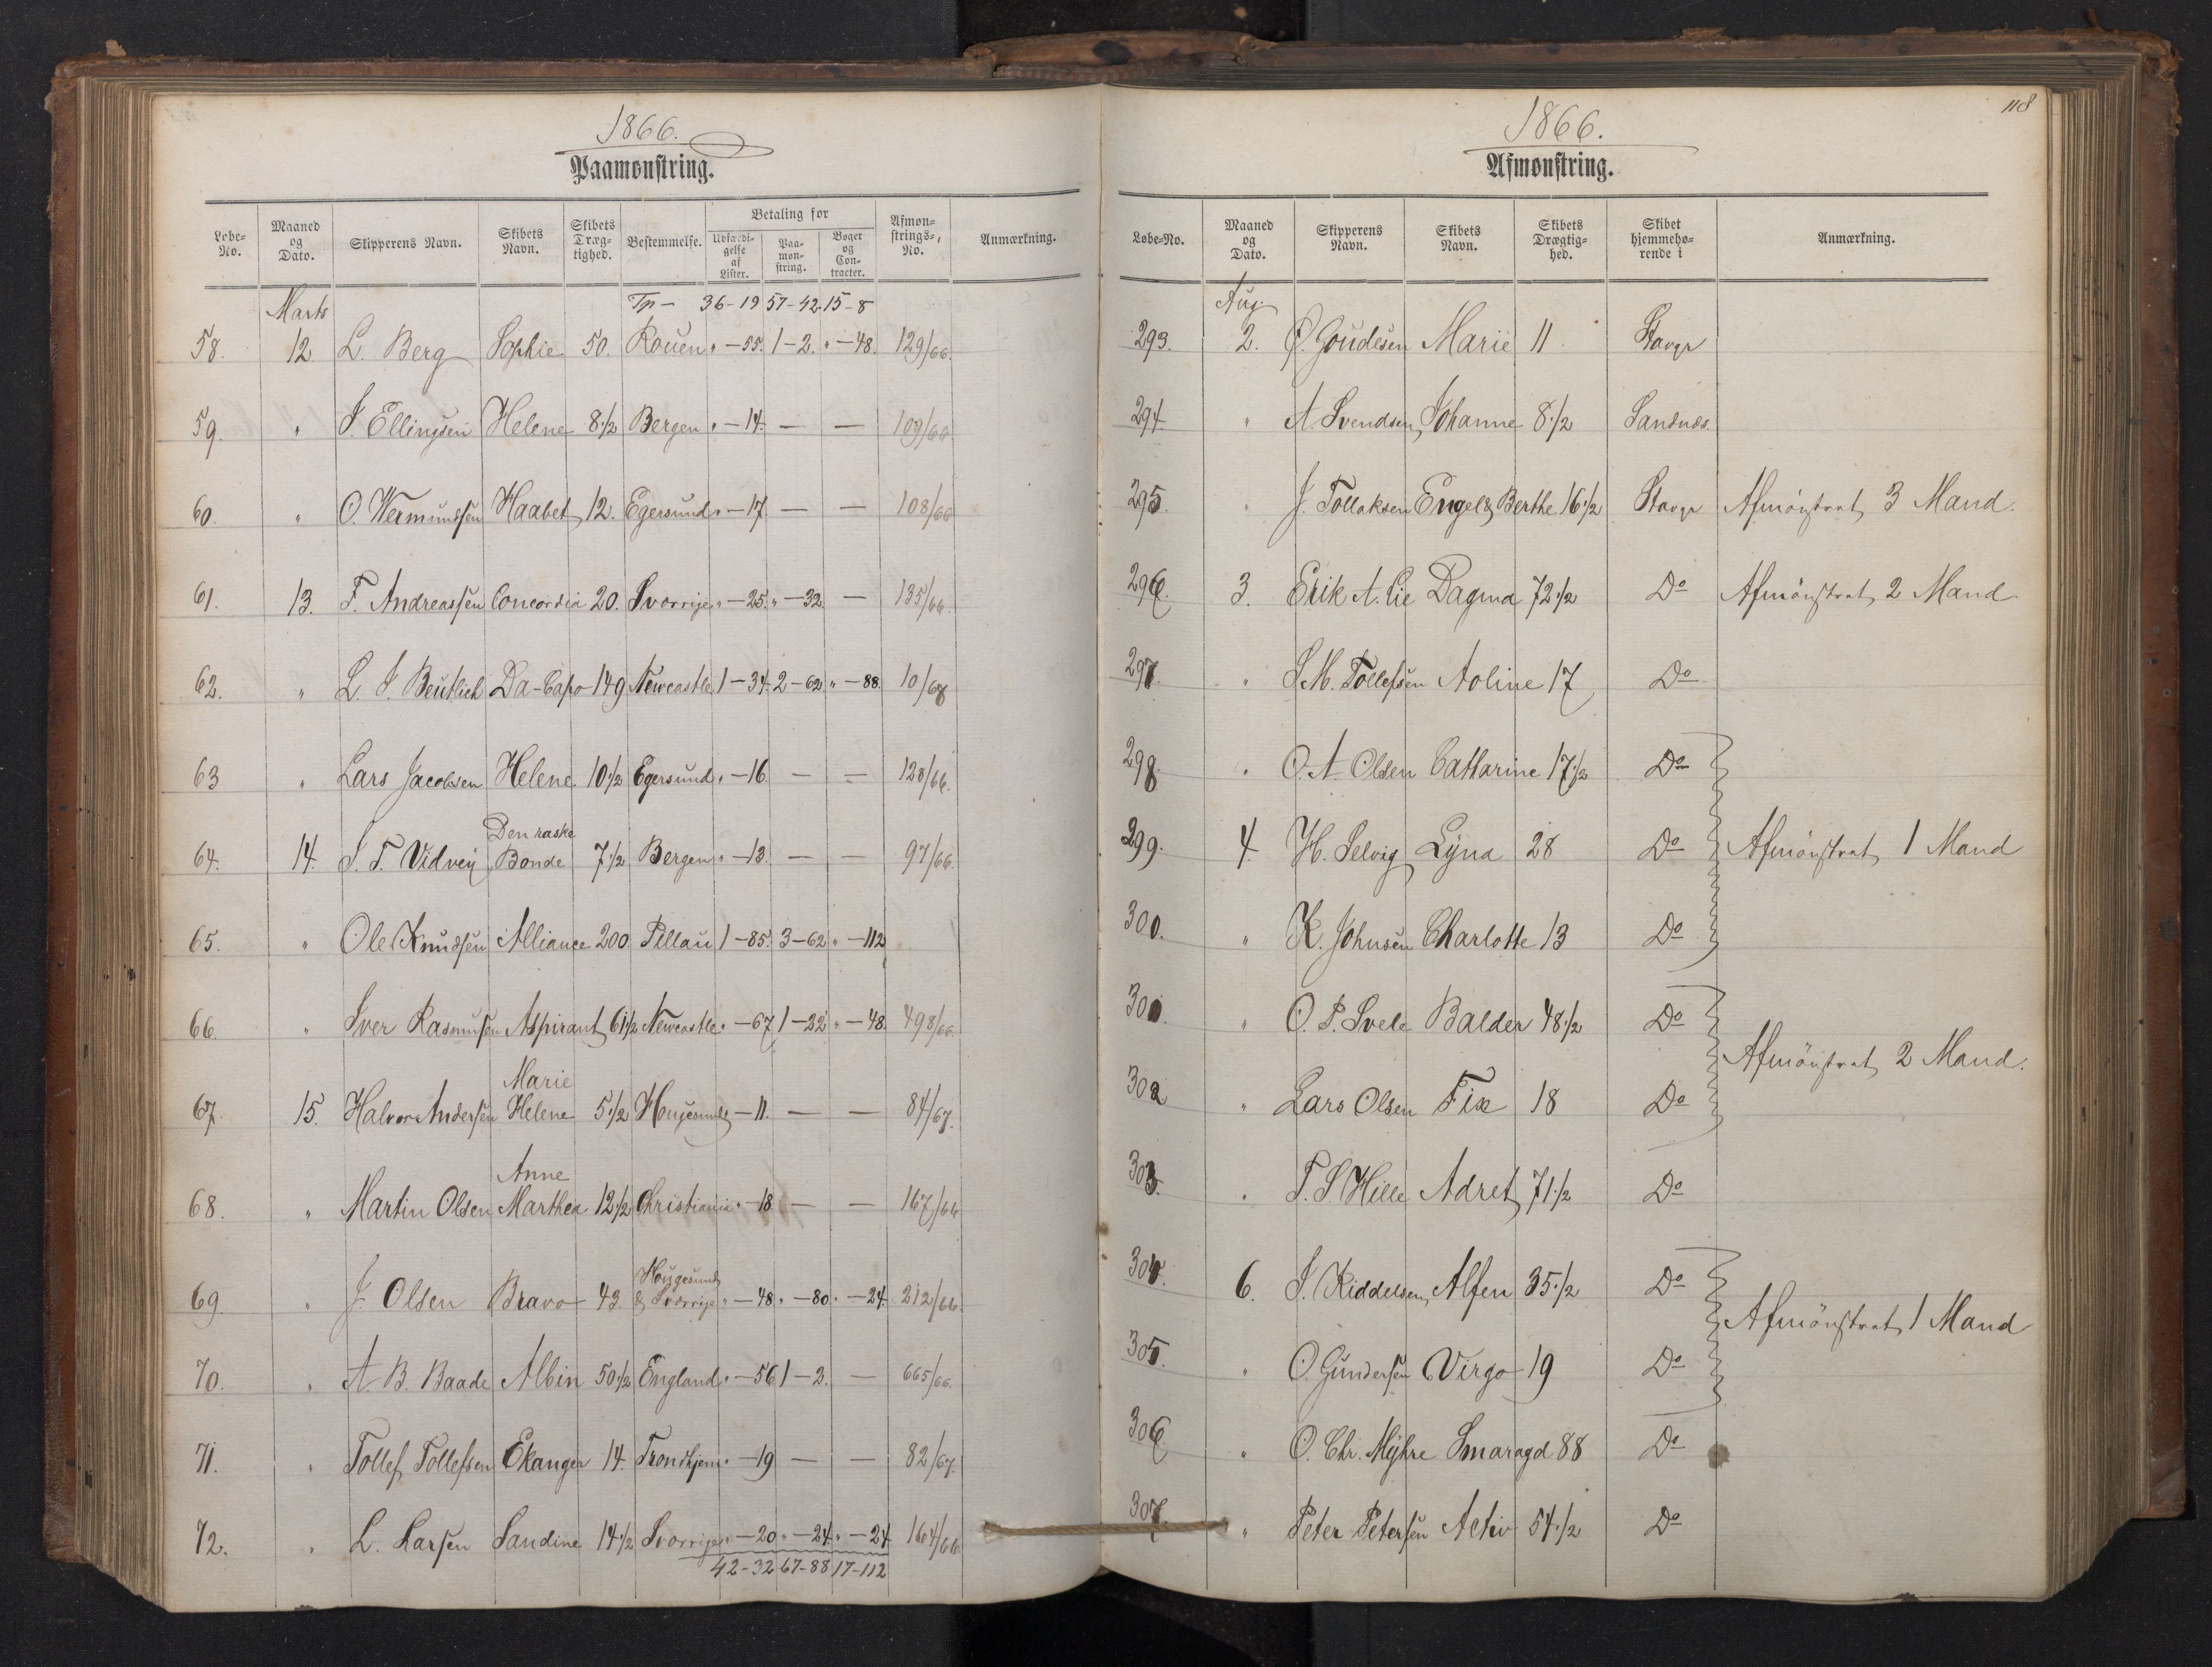 1866.
Paamønstring.
Løbe-No. Maaned og Dato. Skipperens Navn. Skibets Navn. Skibets Drægtighed. Bestemmelse. Betaling for Udfærdigelse af Lister. Paamønstring. Bøger og Contracter. Afmønstrings-No. Anmærkning.
Marts Tp – 36-19 57-42. 15-8
58. 12 L. Berg Sophie 50. Rouen " - 55. 1-2. " - 48. 129/66.
59. " J. Ellingsen Helene 8 1/2 Bergen " - 14. — — 109/66
60. " O. Wermundsen Haabet 12. Egersund " - 17 — — 108/66
61. 13. F. Andreassen Concordia 20. Sverrige " - 25. " - 32 — 135/66.
62. " L. J. Beutlich Da-Capo 149 Newcastle 1-34. 2-62 " - 88. 10/68
63 " Lars Jacobsen Helene 10 1/2 Egersund " - 16. — — 128/66.
64. 14. S. T. Vidvey Den raske Bonde 7 1/2 Bergen " - 13. — — 97/66.
65. " Ole Knudsen Alliance 200. Pillau 1-85. 3-62 " - 112
66. " Iver Rasmussen Aspirant 61 1/2 Newcastle " - 67 1-22 " - 48. 498/66.
67. 15. Halvor Andersen Marie Helene 5 1/2 Hougesund " - 11. — — 84/67.
68. " Martin Olsen Anne Marthea 12 1/2 Christiania " - 18 — — 167/66
69. " J. Olsen Bravo 43. Hougesund & Sverrige " - 48. " - 80. " - 24. 212/66.
70. " A. B. Baade Albin 50 1/2 England " - 56 1-2. — 665/66.
71. " Tollef Tollefsen Ekanger 14. Trondhjem " - 19 — — 82/67.
72. " L. Larsen Sandine 14 1/2 Sverrige " - 20. " - 24. " - 24. 164/66
42-32 67-88 17-112
118
1866.
Afmønstring.
Løbe-No. Maaned og Dato. Skipperens Navn. Skibets Navn. Skibets Drægtighed. Skibet hjemmehørende i Anmærkning.
Aug.
293. 2. Ø. Goudesen Marie 11 Stavgr
294. " A. Svendsen Johanne 8 1/2 Sandnæs.
295. " J. Tollaksen Engel & Berthe 16 1/2 Stavgr Afmönstrat 3 Mand.
296. 3. Erik A. Lie Dagma 72 1/2 Do Afmönstrat 2 Mand
297. " S. M. Tollefsen Aoline 17 Do
298. " O. A. Olsen Catharine 17 1/2 Do
299. 4. H. Selvig Lyna 28 Do Afmönstrat 1 Mand
300. " K. Johnsen Charlotte 13 Do
301. " O. P. Svele Balder 48 1/2 Do
Afmönstrat 2 Mand.
302 " Lars Olsen Fix 18 Do
303. " T. S. Hille Adret 71 1/2 Do
304. 6. J. Kiddelsen Alfen 35 1/2 Do
Afmönstrat 1 Mand
305. " O. Gundersen Virgo 19 Do
306. " O. Chr. Myhre Smaragd 88 Do
307. " Peter Petersen Activ 54 1/2 Do